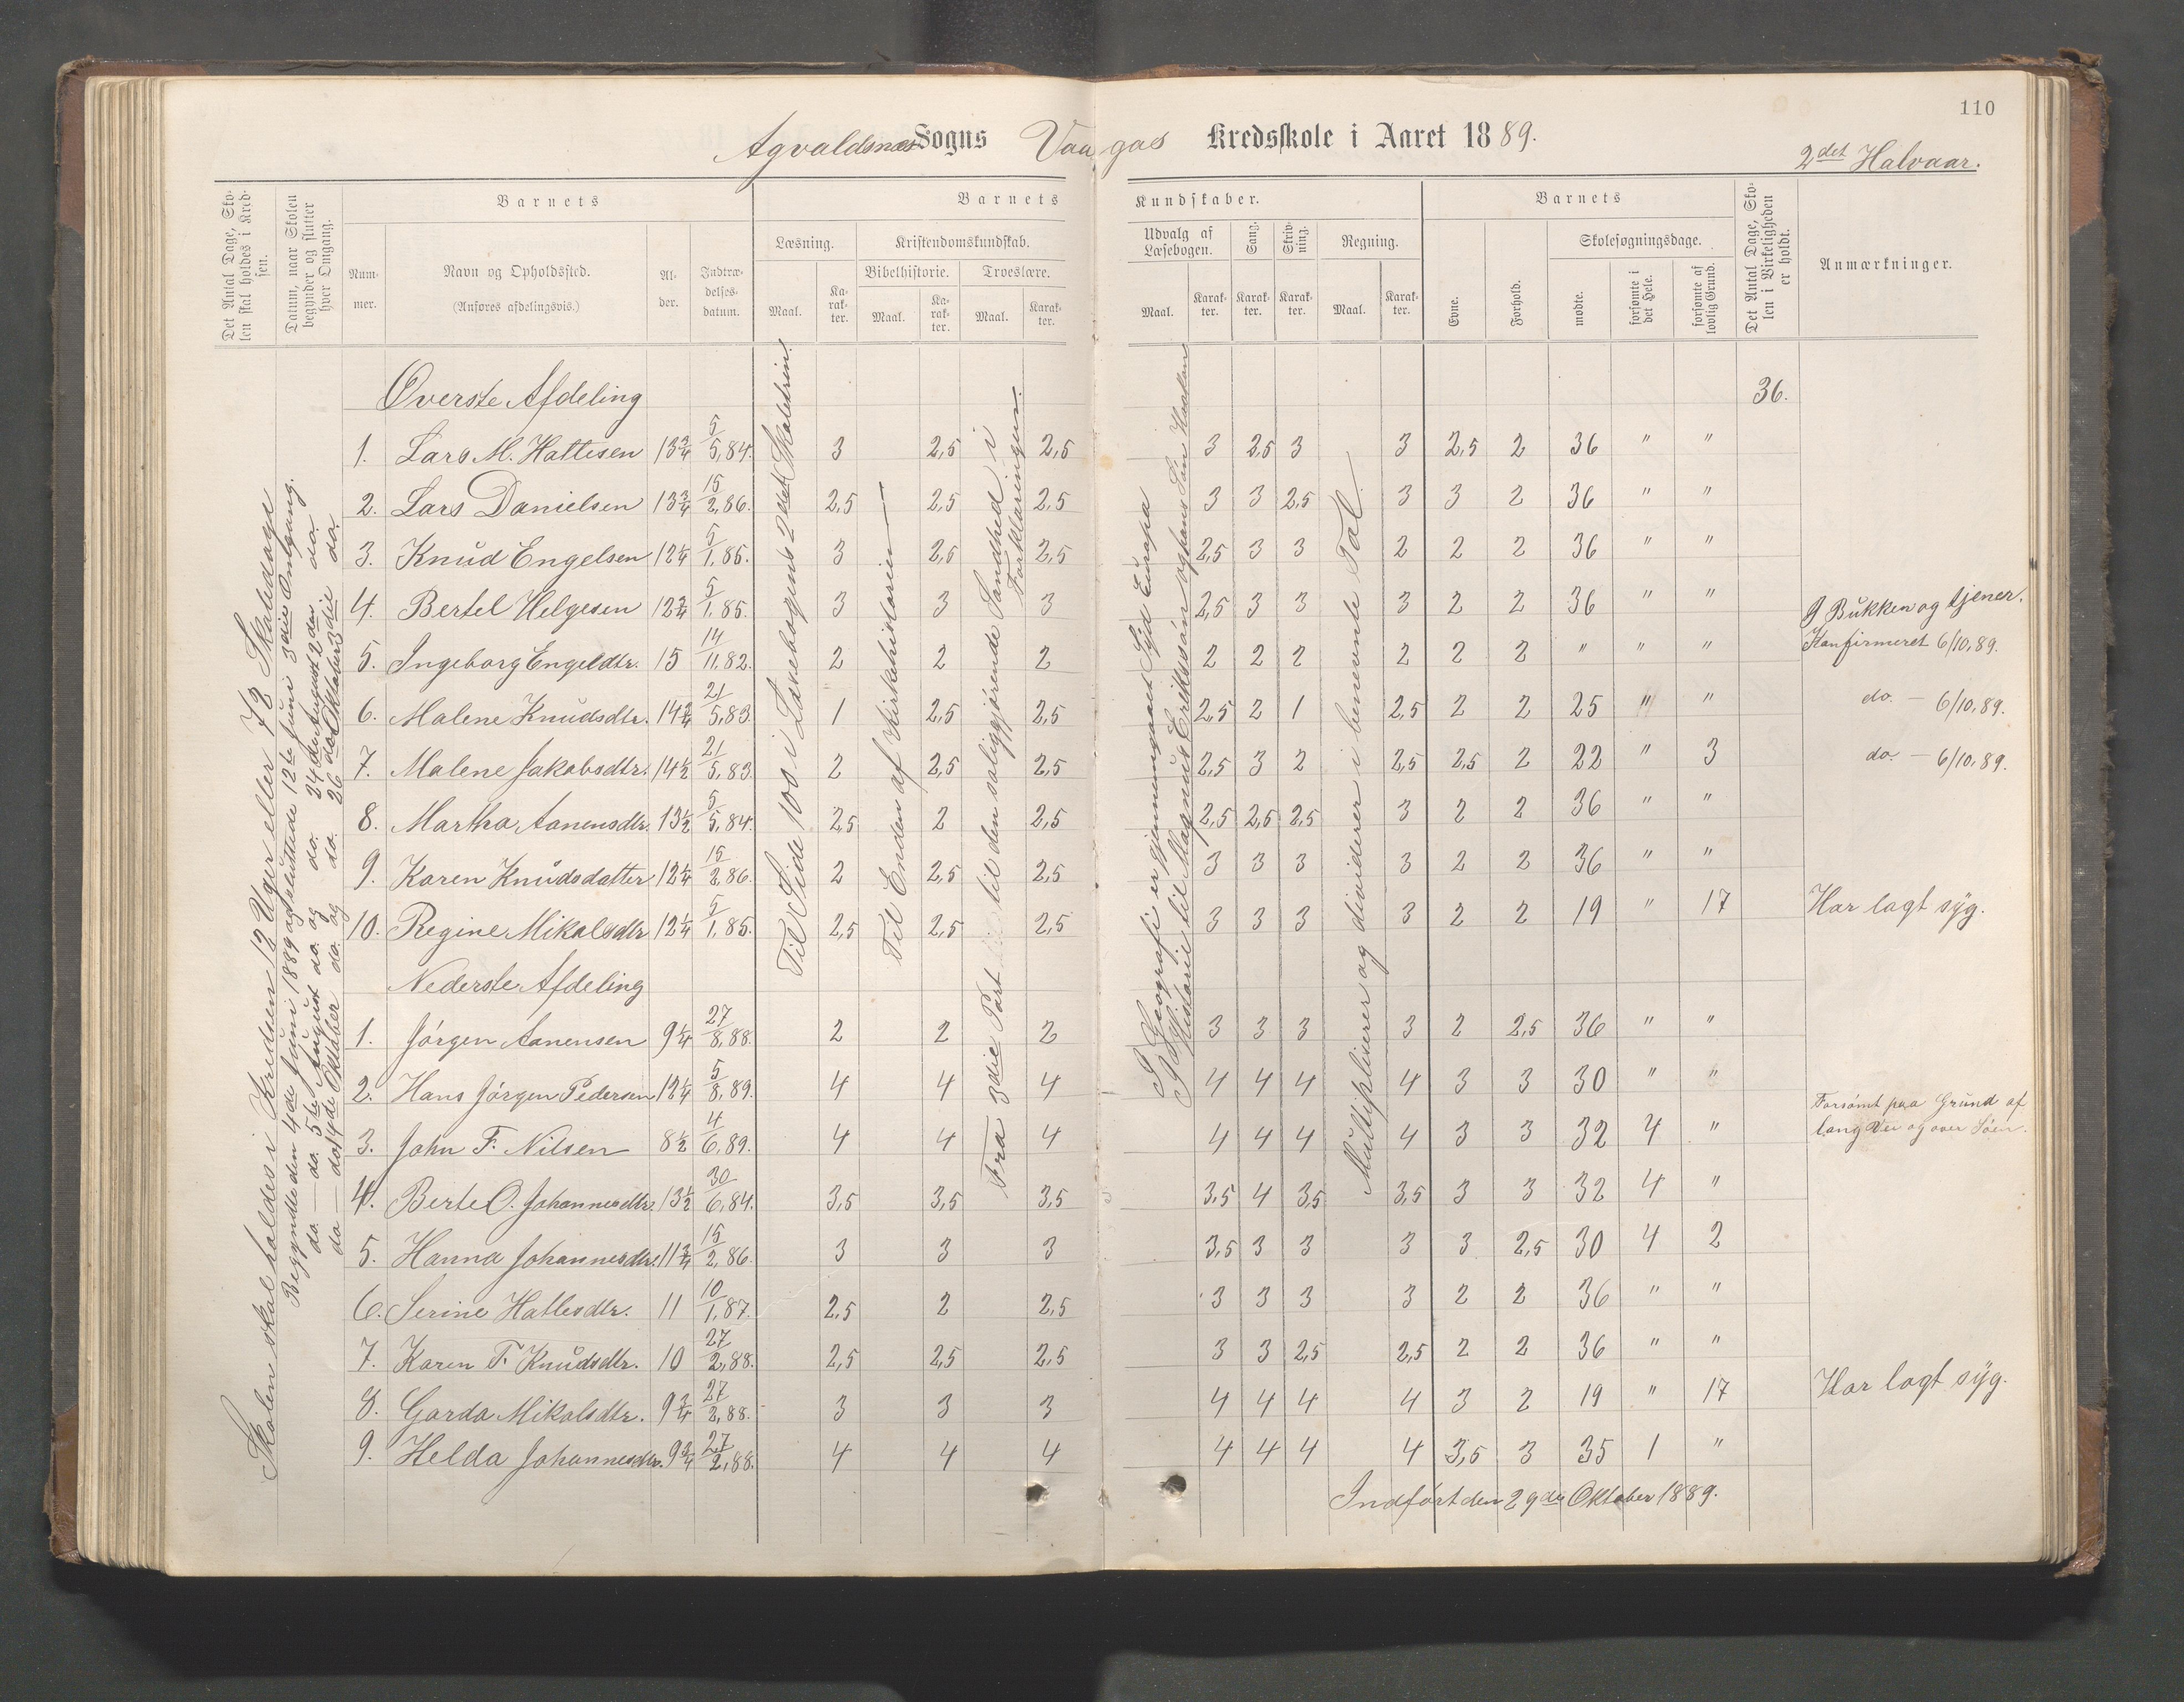 110
Agvaldsnes Sogns Vaagas Kredsskole i Aaret 1889.
2det Halvaar.
Det Antal Dage, Skolen skal holdes i Kredsen.
Datum, naar Skolen begynder og slutter hver Omgang.
Barnets
Nummer.
Navn og Opholdssted.
(Anføres afdelingsvis.)
Alder.
Indtrædelsesdatum.
Barnets Kundskaber.
Læsning.
Maal.
Karakter.
Kristendomskundskab.
Bibelhistorie.
Maal.
Karakter.
Troeslære.
Maal.
Karakter.
Udvalg af Læsebogen.
Maal.
Karakter.
Sang.
Karakter.
Skrivning.
Karakter.
Regning.
Maal.
Karakter.
Barnets
Evne.
Forhold.
Skolesøgningsdage.
mødte.
forsømte i det Hele.
forsømte af lovlig Grund.
Det Antal Dage, Skolen i Virkeligheden er holdt.
Anmærkninger.
Skolen skal holdes i Kredsen 12 Uger eller 72 Skoledage
Begyndte den 4de Juni 1889 og sluttede 12te Juni 3die Omgang.
do. — do. 5te August do. og do. 24de August 2den do.
do — do 14de Oktober do. og do. 26de Oktober 3die do.
Til Side 100 i Læsebogens 2det Skoletrin.
Til Enden af Kirkehistorien —
Fra 3die Part til den saliggjørende Sandhed i Forklaringen.
I Geografi er gjennemgaaet Syd Europa
I Historie til Magnus Erikssøn og hans Søn Haakon
Multipliserer og dividerer i benevnte Tal.
Øverste Afdeling 36.
1. Lars M. Hattesen 13 3/4 5/5,84. 3 2,5 2,5 3 2,5 3 3 2,5 2 36 " "
2. Lars Danielsen 13 3/4 15/2,86. 2,5 2,5 2,5 3 3 2,5 3 3 2 36 " "
3. Knud Engelsen 12 1/4 5/1,85. 3 2,5 2,5 2,5 3 3 2 2 2 36 " "
4. Bertel Helgesen 12 3/4 5/1,85. 3 3 3 2,5 3 3 3 2 2 36 " " I Bukken og tjener.
5. Ingeborg Engeldtr. 15 14/11,82. 2 2 2 2 2 2 2 2 2 " " " Konfirmeret 6/10,89.
6. Malene Knudsdtr. 14 3/4 21/5,83. 1 2,5 2,5 2,5 2 1 2,5 2 2 25 " " do. — 6/10,89.
7. Malene Jakobsdtr. 14 1/2 21/5,83. 2 2,5 2,5 2,5 3 2 2,5 2,5 2 22 " 3 do. — 6/10,89.
8. Martha Aanensdtr. 13 1/2 5/5,84. 2,5 2 2,5 2,5 2,5 2,5 3 2 2 36 " "
9. Karen Knudsdatter 12 1/4 15/2,86. 2 2,5 2,5 3 3 3 3 2 2 36 " "
10. Regine Mikalsdtr 12 1/4 5/1,85. 2,5 2,5 2,5 3 3 3 3 2 2 19 " 17 Har lagt syg.
Nederste Afdeling
1. Jørgen Aanensen 9 1/4 27/8,88. 2 2 2 3 3 3 3 2 2,5 36 " "
2. Hans Jørgen Pedersen 12 1/4 5/8,89. 4 4 4 4 4 4 4 3 3 30 " "
3. John F. Nilsen 8 1/2 4/6,89. 4 4 4 4 4 4 4 3 3 32 4 " Forsømt paa Grund af lang Vei og over Søen.
4. Berte O. Johannesdtr. 13 1/2 30/6,84. 3,5 3,5 3,5 3,5 4 3,5 3,5 3 3 32 4 "
5. Hanna Johannesdtr. 11 3/4 15/2,86. 3 3 3 3,5 3 3 3 3 2,5 30 4 2
6. Serine Hattesdtr. 11 10/1,87. 2,5 2 2,5 3 3 3 3 2 2 36 " "
7. Karen T. Knudsdtr. 10 27/2,88. 2,5 2,5 2,5 3 3 2,5 2,5 2 2 36 " "
8. Garda Mikalsdtr. 9 3/4 27/2,88. 3 3 3 4 4 4 4 3 2 19 " 17 Har lagt syg.
9. Helda Johannesdtr. 9 3/4 27/2,88. 4 4 4 4 4 4 4 3,5 3 35 1 "
Indført den 29de Oktober 1889.